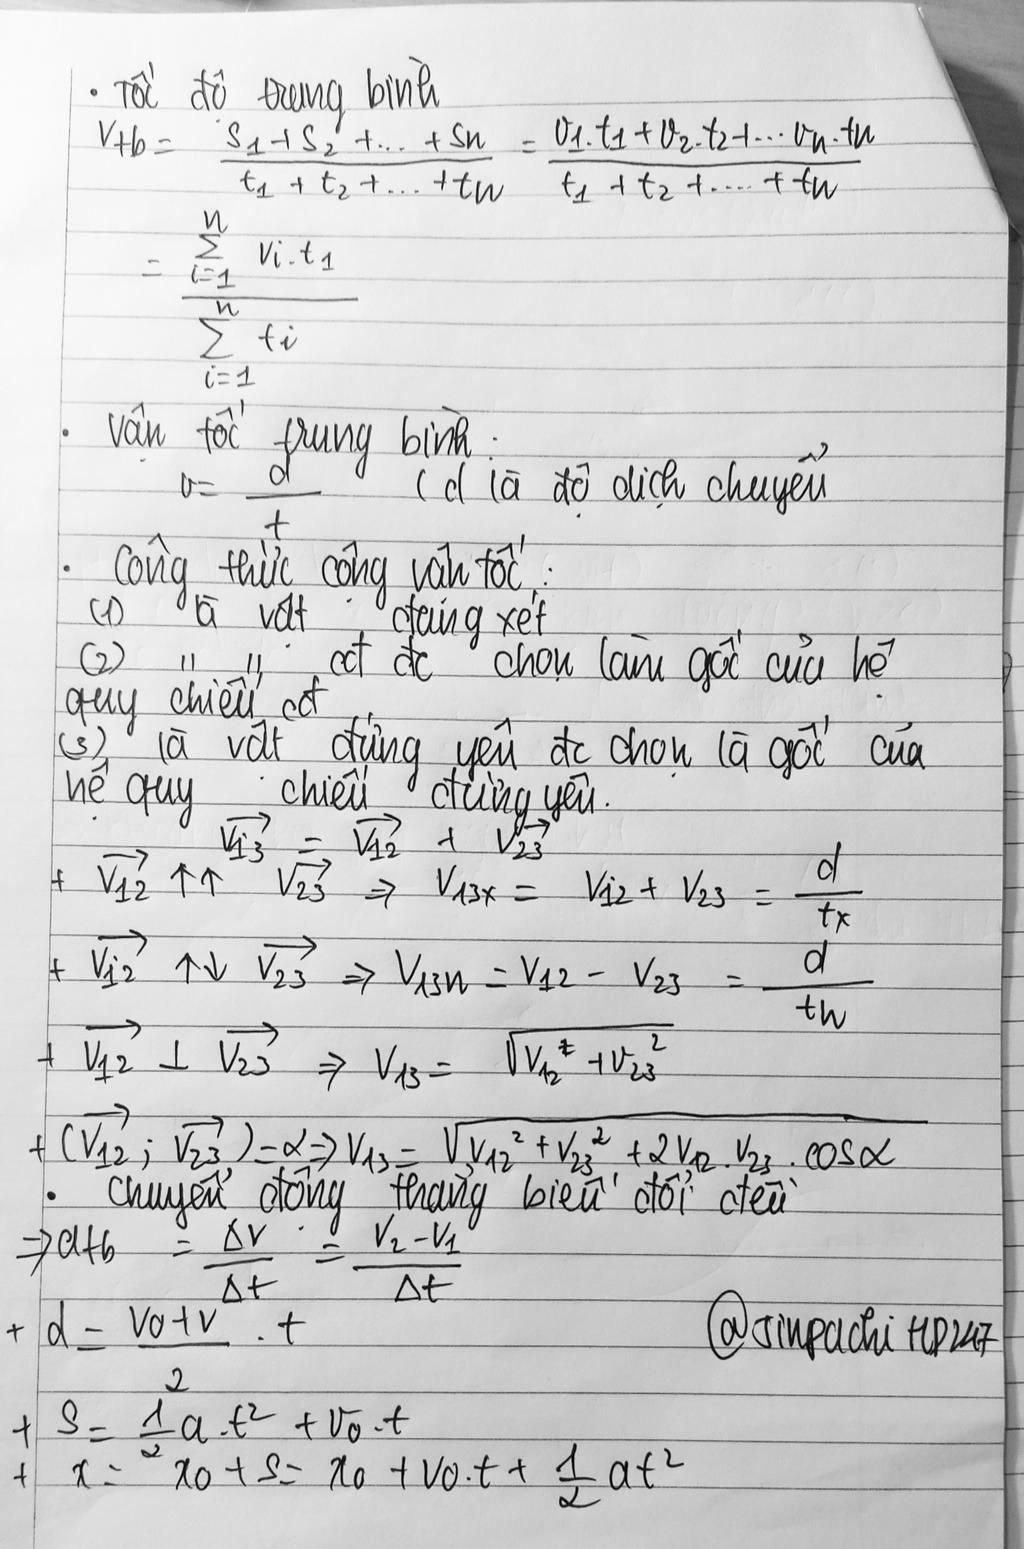 • Tốc độ trung bình
Vtb = (S1 + S2 + ... + Sn)/(t1 + t2 + ... + tn) = (v1.t1 + v2.t2 + ... vn.tn)/(t1 + t2 + .... + tn)
= (∑ⁿᵢ₌₁ vi.t1)/(∑ⁿᵢ₌₁ ti)
• Vận tốc trung bình:
v = d/t ( d là độ dịch chuyển
• Công thức cộng vận tốc:
(1) là vật đang xét
(2) " " cđ đc chọn làm gốc của hệ
quy chiếu cđ
(3) là vật đứng yên đc chọn là gốc của
hệ quy chiếu đứng yên.
V13→ = V12→ + V23→
+ V12→ ↑↑ V23→ ⇒ V13x = V12 + V23 = d/tx
+ V12→ ↑↓ V23→ ⇒ V13n = V12 - V23 = d/tn
+ V12→ ⊥ V23→ ⇒ V13 = √(V12² + V23²)
+ (V12→ ; V23→) = α ⇒ V13 = √(V12² + V23² + 2V12.V23.cosα)
• chuyển động thẳng biến đổi đều
⇒ atb = ΔV/Δt = (V2 - V1)/Δt
+ d = (V0 + V)/2 . t
@sinpachiHP247
+ S = 1/2 a.t² + V0.t
+ x = x0 + S = x0 + V0.t + 1/2 at²